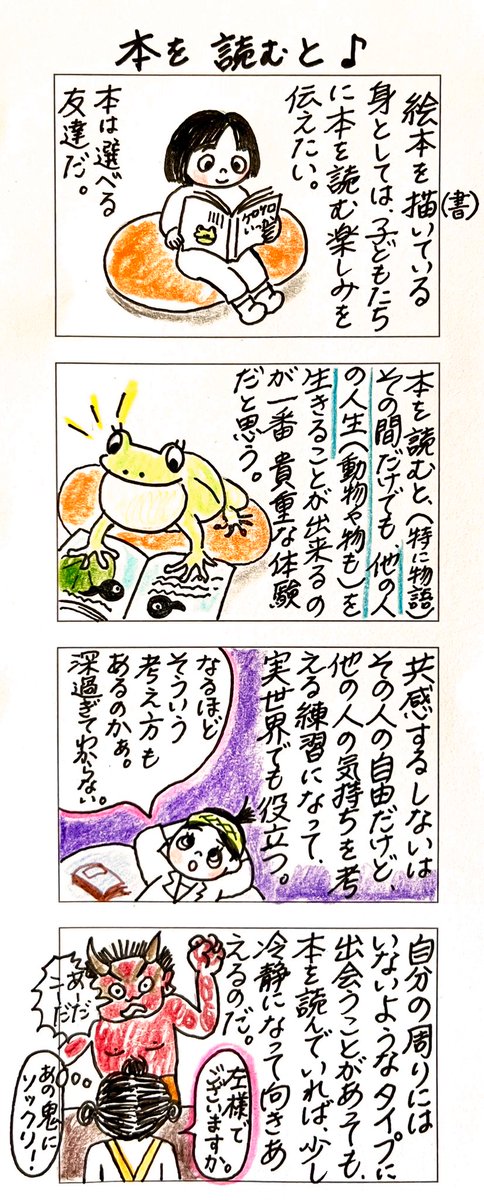 本を読むと♪
絵本を描いている
(書)
身としては、子どもたち
に本を読む楽しみを
伝えたい。
本は選べる
友達だ。
本を読むと、(特に物語)
その間だけでも他の人
の人生(動物や物も)を
生きることが出来るの
が一番貴重な体験
だと思う。
共感するしないは
その人の自由だけど、
他の人の気持ちを考
える練習になって、
実世界でも役立つ。
なるほど
そういう
考え方も
あるのかぁ。
深過ぎてわからない。
自分の周りには
いないようなタイプに
出会うことがあっても、
本を読んでいれば、少し
冷静になって向きあ
えるのだ。
あーだ
こーだ
左様で
ございますか。
あの鬼に
ソックリ!